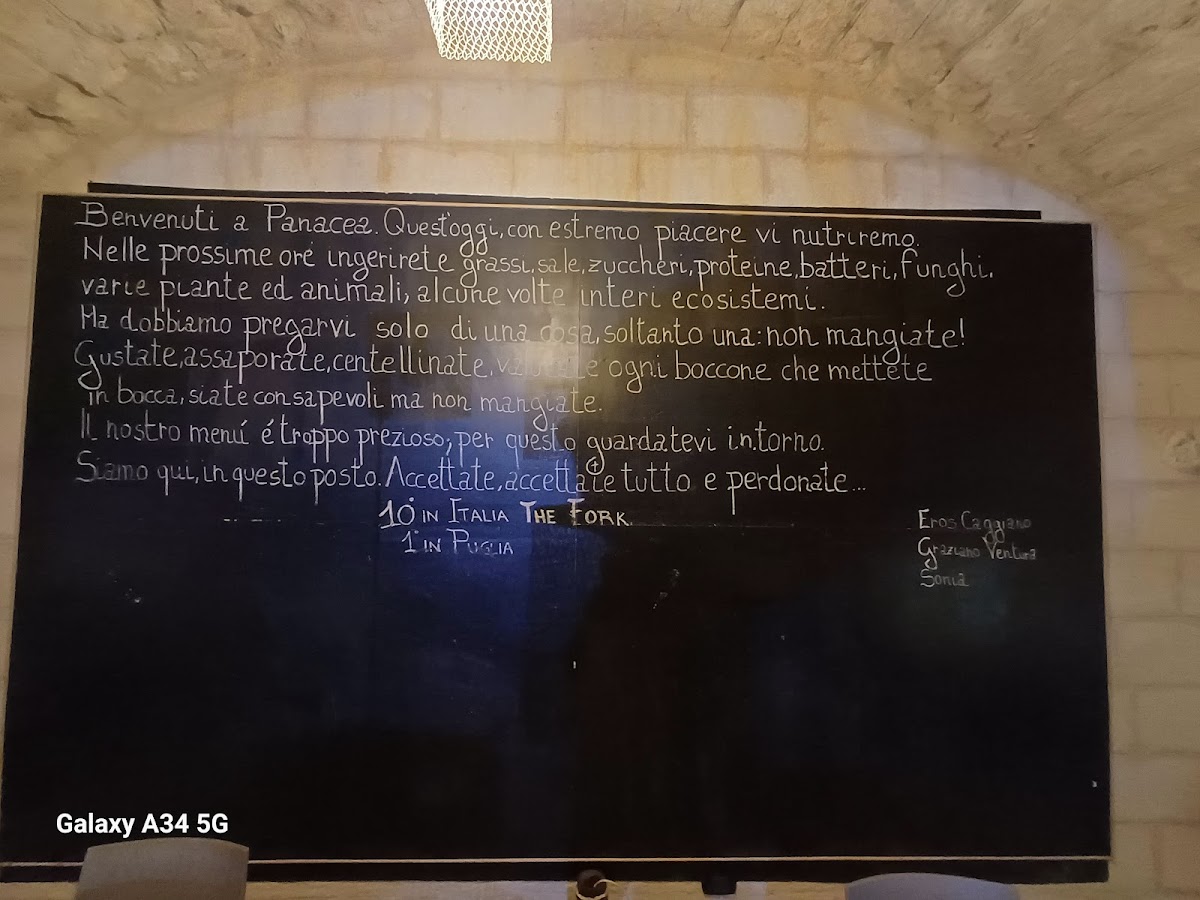 Benvenuti a Panacea. Quest'oggi, con estremo piacere vi nutriremo.
Nelle prossime oré ingerirete grassi, sale, zuccheri, proteine, batteri, funghi,
varie piante ed animali, alcune volte interi ecosistemi.
Ma dobbiamo pregarvi solo di una cosa, soltanto una: non mangiate!
Gustate, assaporate, centellinate, ogni boccone che mettete
in bocca, siate consapevoli ma non mangiate.
Il nostro menú é troppo prezioso, per questo guardatevi intorno.
Siamo qui, in questo posto. Accettate, accettate tutto e perdonate...
10° IN ITALIA THE FORK
1° IN PUGLIA
Eros Caggiano
Graziano Ventura
Sonia
Galaxy A34 5G